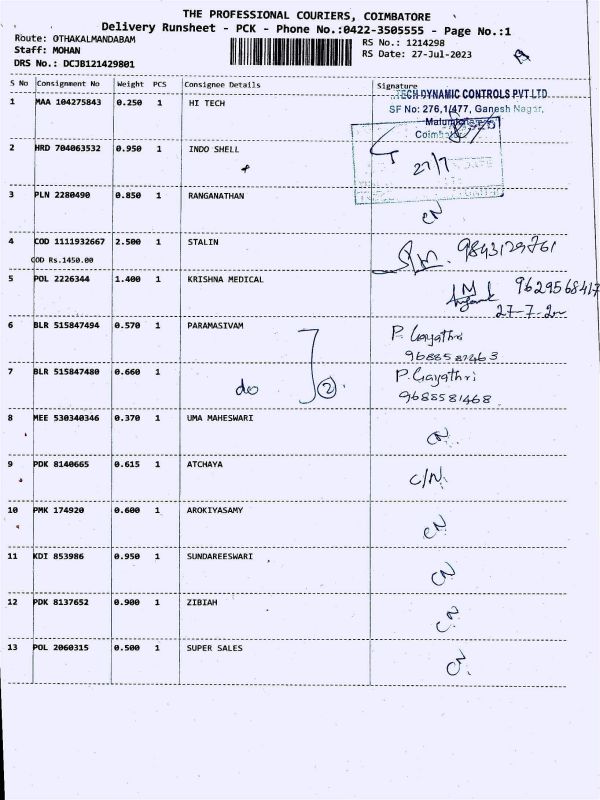 THE PROFESSIONAL COURIERS, COIMBATORE
Delivery Runsheet - PCK - Phone No.:0422-3505555 - Page No.:1
Route: OTHAKALMANDABAM
RS No.: 1214298
Staff: MOHAN
RS Date: 27-Jul-2023
DRS No.: DCJB121429801
S No Consignment No Weight PCS Consignee Details Signature
TECH DYNAMIC CONTROLS PVT LTD
1 MAA 104275843 0.250 1 HI TECH
SF No: 276,1/477, Ganesh Nagar,
2 HRD 704063532 0.950 1 INDO SHELL
27/7
3 PLN 2280490 0.850 1 RANGANATHAN
CN
4 COD 1111932667 2.500 1 STALIN
9843129761
COD Rs.1450.00
5 POL 2226344 1.400 1 KRISHNA MEDICAL
9629568417
6 BLR 515847494 0.570 1 PARAMASIVAM P. Gayathri
9688581463
7 BLR 515847480 0.660 1 do 2 P. Gayathri
9688581468
8 MEE 530340346 0.370 1 UMA MAHESWARI CN
9 PDK 8140665 0.615 1 ATCHAYA C/N
10 PMK 174920 0.600 1 AROKIYASAMY CN
11 KDI 853986 0.950 1 SUNDAREESWARI CN
12 PDK 8137652 0.900 1 ZIBIAH CN
13 POL 2060315 0.500 1 SUPER SALES CN